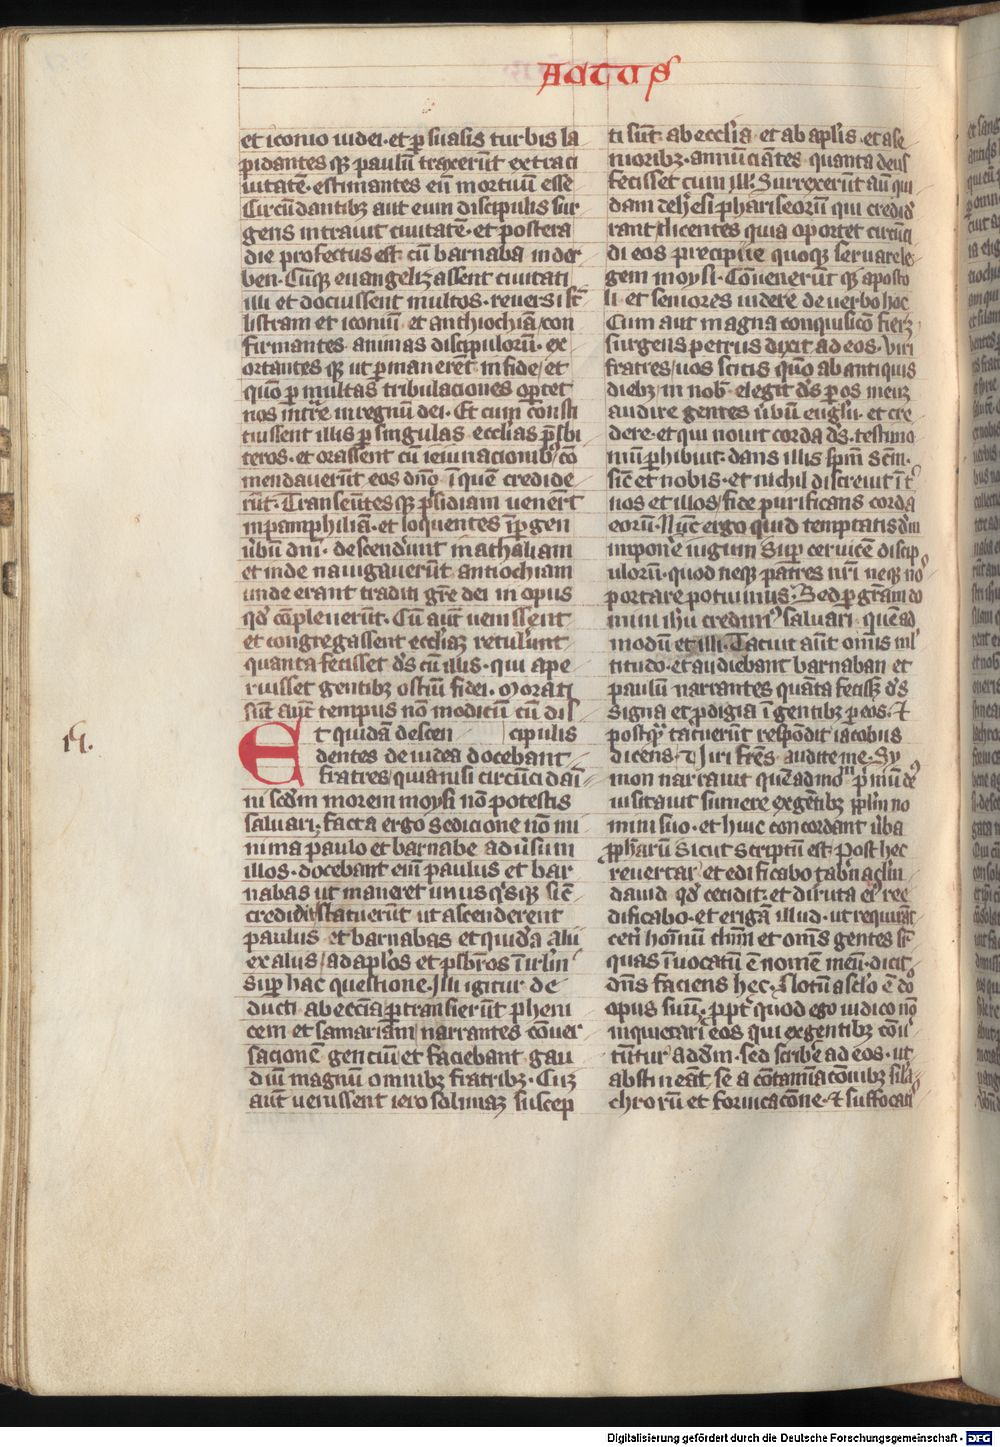 ACTUS
et iconio iudei · et ꝑ suasis turbis la
pidantes qꝫ paulū traxerūt extra ci
uitatē · estimantes eū mortuū esse
Circūdantibꝫ aut eum discipulis sur
gens intrauit ciuitatē · et postera
die profectus est cū barnaba in der
ben · Cūqꝫ euangelizassent ciuitati
illi et docuissent multos · reuersi sūt
listram et iconiū et anthiochiā / con
firmantes animas discipulorū · ex
ortantes qꝫ ut ꝑmanerēt in fide / et
quō ꝑ multas tribulaciones oportet
nos intrͣe in regnū dei · Et cum consti
tuissent illis ꝑ singulas ecclīas p̄sbi
teros · et orassent cū ieiunacionibꝫ cō
mendauerūt eos dnō ī quē credide
rūt · Transeūtes qꝫ p̄sidiam uenerūt
in pamphiliā · et loquentes ī ꝑgen
ūbū dnī · descendūnt in athaliam
et inde nauigauerūt antiochiam
unde erant traditi gr̄e dei in opus
qd̓ cōpleuerūt · Cū aūt uenissent
et congregassent eccliaꝫ retulūnt
quanta fecisset d̄s cū illis · qui ape
ruisset gentibꝫ ostiū fidei · Morati
sūt aūt tempus nō modicū cū dis
Et quidā descen cipulis
dentes de iudea docebant
fratres quia nisi circūcidam
ini scd̄m morem moysi nō potestis
saluari; facta ergo sedicione nō mi
nima paulo et barnabe aduīsum
illos · docebant eni paulus et bar
nabas ut maneret unus qͥsqꝫ sic̄
credidit statuerūt ut ascenderent
paulus et barnabas et quidā alii
ex aliis / ad aplōs et p̄sbr̄os ī irlīm
suꝑ hac questione · Illi igitur de
ducti ab eccīa ꝑtransierūt pheni
cem et samariam narrantes cōuer
sacionē genciū et faciebant gau
diū magnū omnibꝫ fratribꝫ · Cuꝫ
aūt uenissent ierosolimaꝫ suscep
ti sūt ab ecclīa et ab aplīs · et a se
nioribꝫ · annūciātes quanta deus
fecisset cum ill̄ · Surrexerūt aū qui
dam de hꝫesi phariseorū qui credid̓
rant dicentes quia oportet circūci
di eos precipue quoqꝫ seruare le
gem moysi · Cōuenerūt qꝫ aposto
li et seniores uidere de uerbo hoc
Cum aut magna conquisicō fieꝫ
surgens petrus dixit ad eos · Viri
fratres / uos scitis quō ab antiquis
diebꝫ in nob̄ elegit d̄s ꝑ os meuꝫ
audire gentes ūbū euglīi · et cre
dere · et qui nouit corda d̄s · testimo
niū ꝑhibuit · dans illis spm̄ scm̄ ·
sic̄ et nobis · et nichil discreuit īt̓
nos et illos / fide purificans corda
eorū · Nūc ergo quid temptatis dm̄
impone̓ iugum supꝑ ceruicē discip
ulorū · quod neqꝫ patres nr̄i neqꝫ nos
portare potuimus · Sed ꝑ gr̄am do
mini ihu credimꝰ saluari · quēad
modū et illi · Tacuit aūt omīs ml̄
titudo · et audiebant barnaban et
paulū narrantes quāta fecissꝫ d̄s
signa et prodigia ī gentibꝫ ꝑ eos · Et
postqͣ tacuerūt respōdit iacobus
dicens · Viri fr̄es audite me · Sy
mon narrauit quēadmoᵐ primū dꝰ
uisitauit sumere ex gētibꝫ pplm̄ no
mini suo · et huic concordant ūba
ꝓpharū sicut scriptū est · Post hec
reuertar et edificabo tabn̄aclm̄
dauid qd̓ cecidit · et diruta eiꝰ ree
dificabo · et erigā illud · ut requirāt
ceti hoīmū dnm̄ et omīs gentes sūꝑ
quas īuocatū ē nomē meū · dicit
dn̄s faciens hec · Notū a sclo ē dō
opus suū · ꝓpt̓ quod ego iudico nō
inquietari eos qui ex gentibꝫ cōū
tūtur ad dm̄ · sed scribe̓ ad eos · ut
abstineāt se a cōtamīacōnibꝫ simula
chrorū et fornicacōne · et suffocatis
15.
Digitalisierung gefördert durch die Deutsche Forschungsgemeinschaft - DFG